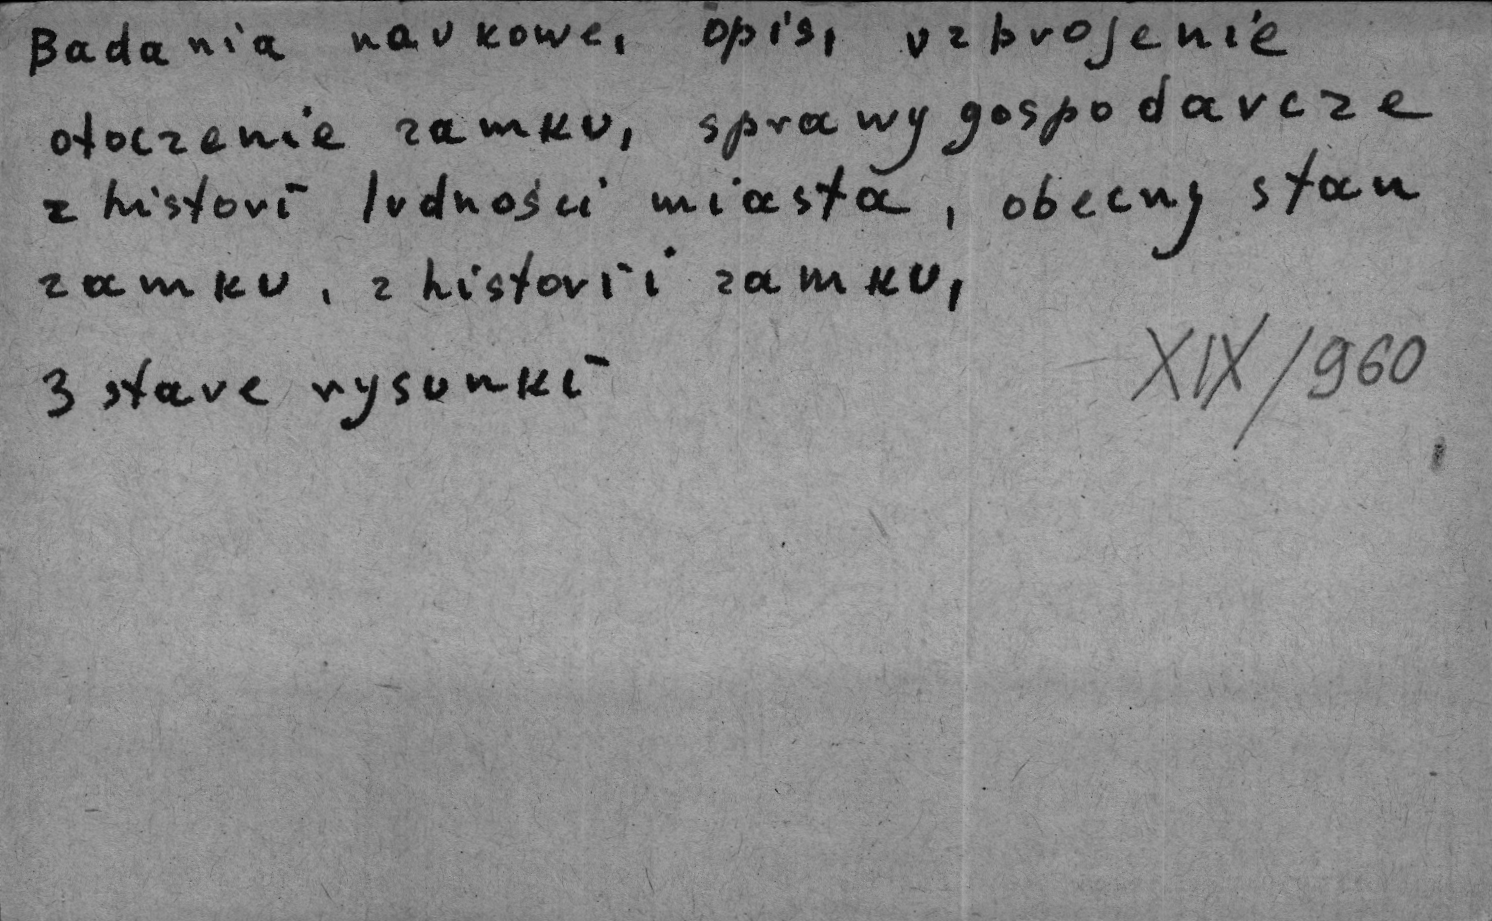 Badania naukowe, opis, uzbrojenie
otoczenie zamku, sprawy gospodarcze
z histori ludności miasta, obecny stan
zamku, z historii zamku,
3 stare rysunki
XIX/960